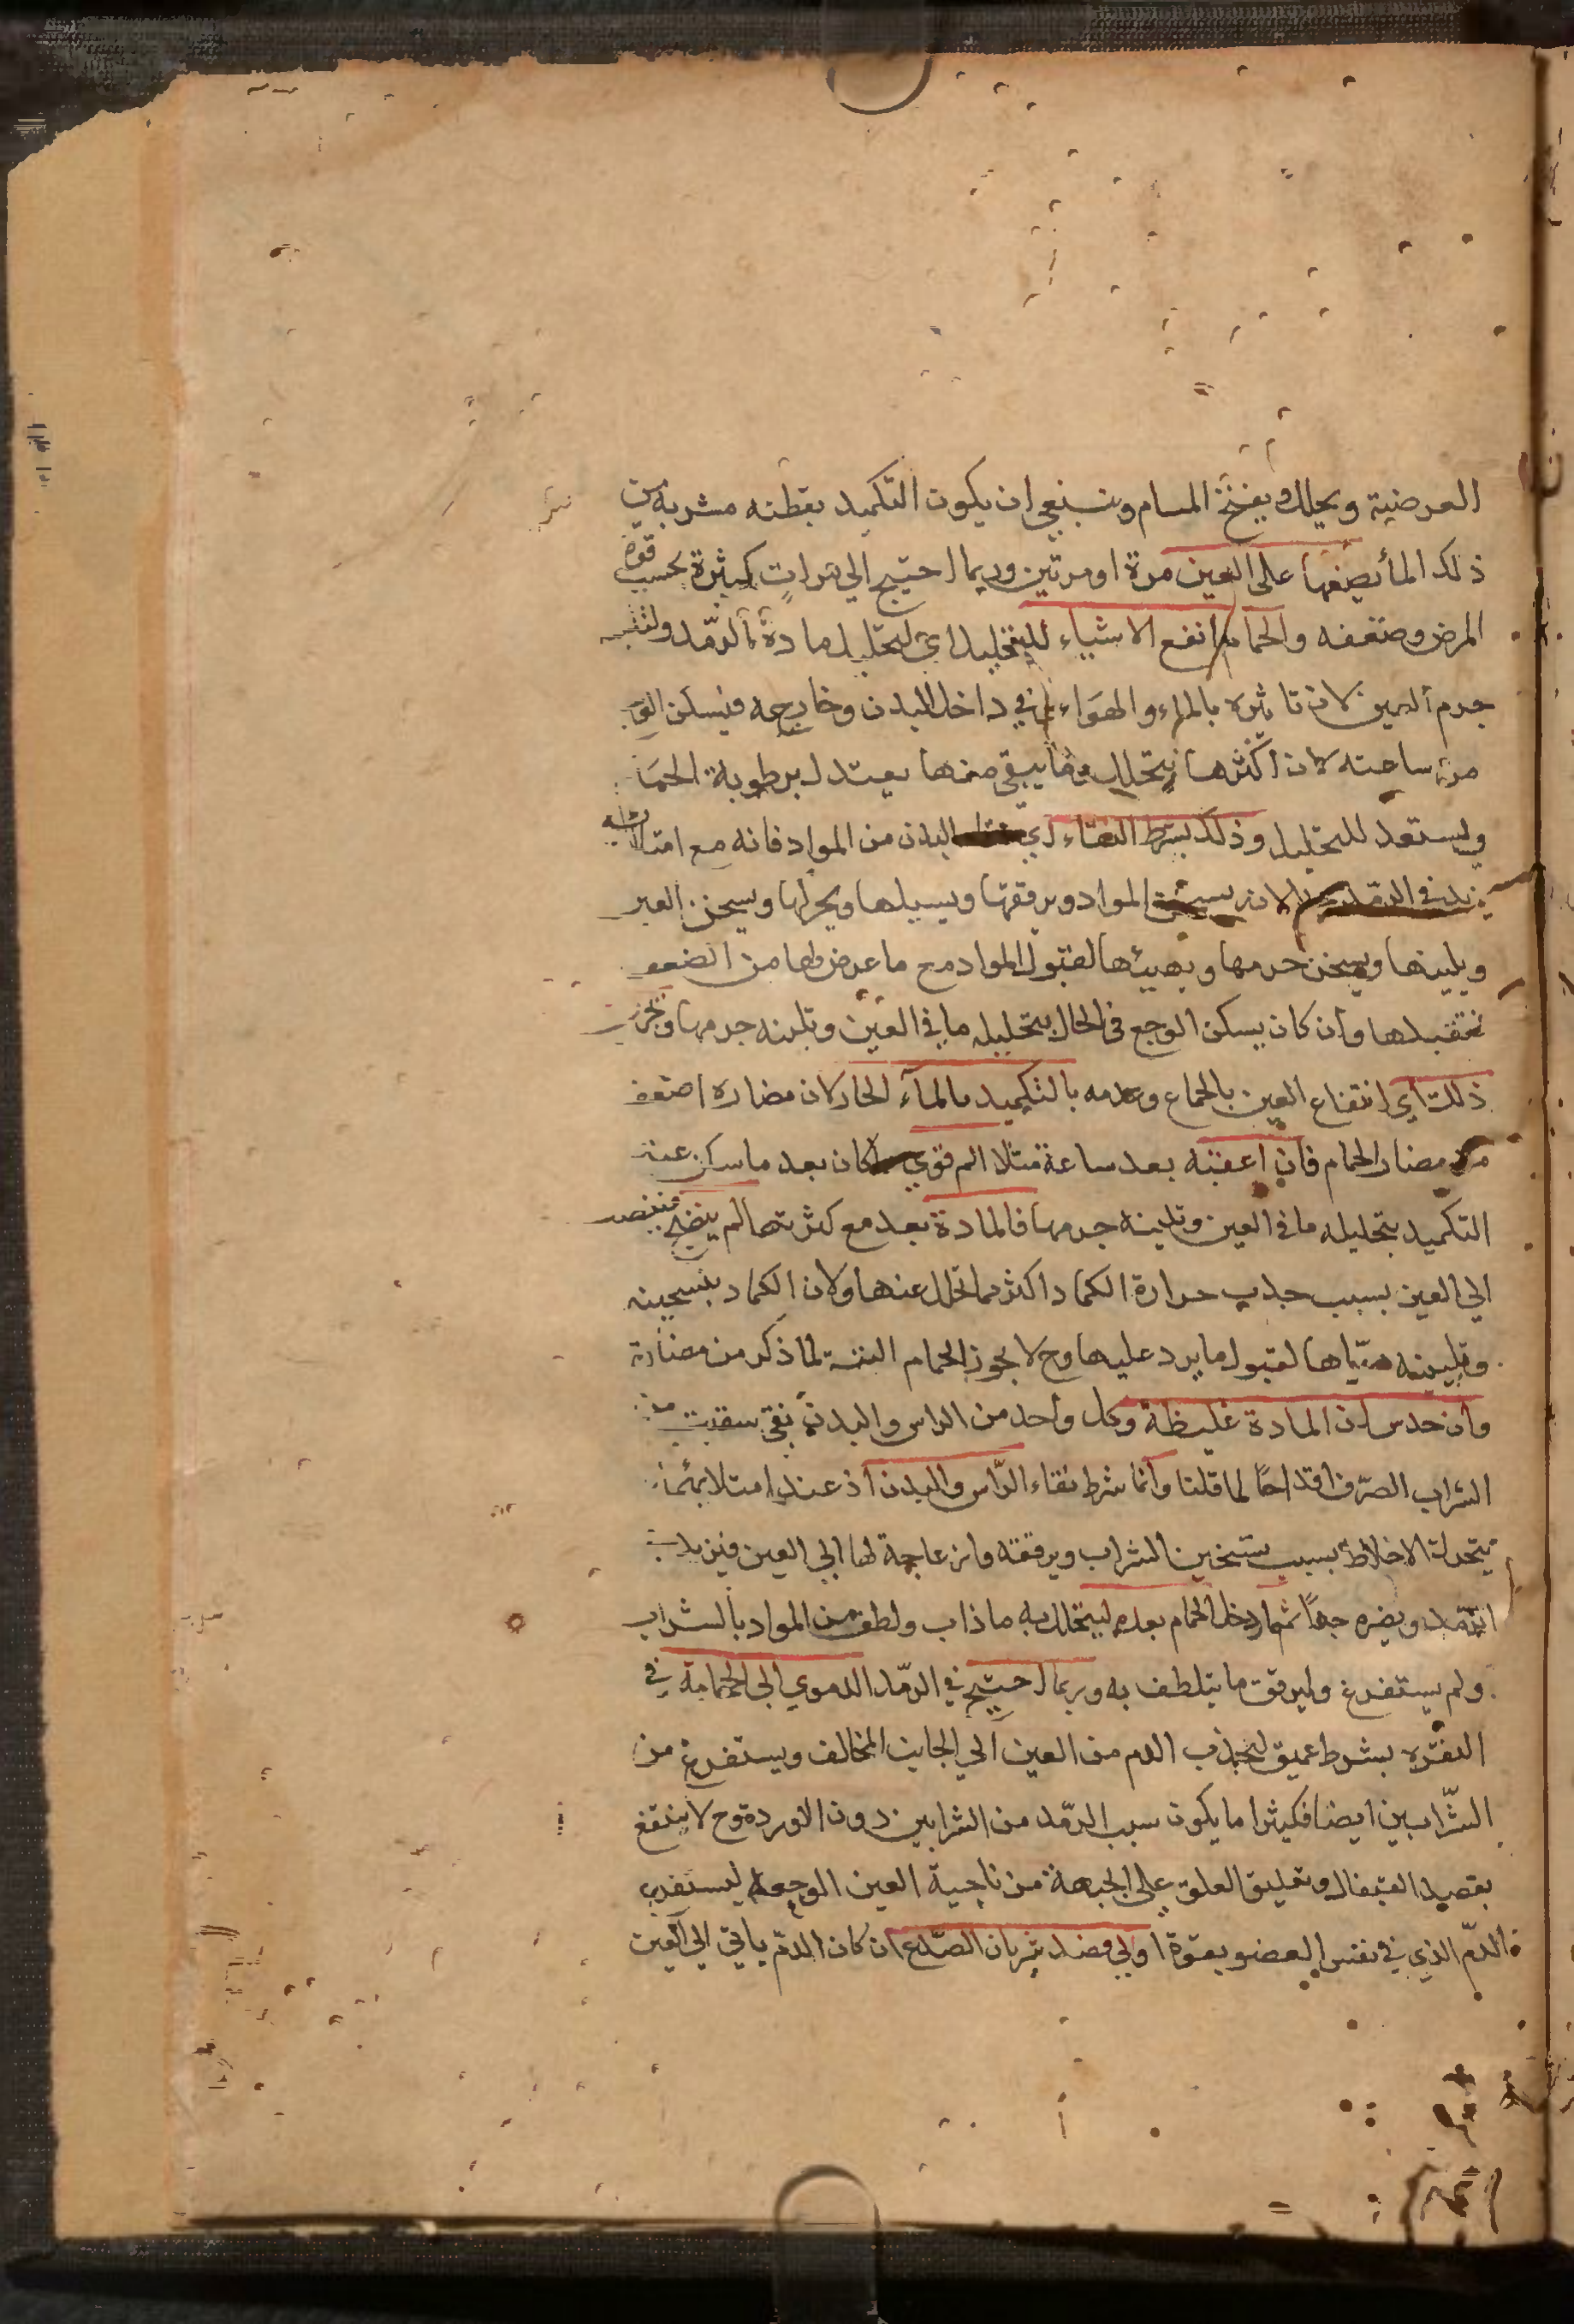 العرضية ويحلل ويفتح المسام وينبغي ان يكون التكميد بقطنه مشربه من
ذلك الماء يضعها على العين مرة او مرتين وربما احتيج الي مراتٍ كثيرة بحسب قوة
المرض وضعفه والحمام انفع الاشياء للتحليل اي لتحليل مادة الرمّد
جرم العين لان تاثيره بالماء والهوَاء في داخل البدن وخارجه فيسكن
من ساعته لان اكثرها يتحلل وما يبقى منها يعتدل برطوبة الحمَا
ويستعد للتحليل وذلك بشرط النقاء اي البدن من المواد فانه مع امتلائه
يزيد في الرمّد لانه المواد ويرققها ويسيلها ويحركها ويسخن العين
ويلينها ويسخن جرمها ويهيئها لقبول المواد مع ما عرض لها من الضعف
فتقبلها وان كان يسكن الوجع في الحال بتحليله ما في العين وتلينه جرمها
ذلك اي انتفاع العين بالحمام وعدمه بالتكميد بالمآء الحار لان مضاره اضعف
من مضار الحمام فان اعقبه بعد ساعة مثلا الم قوي كان بعد ما سكن عنه
التكميد بتحليله ما في العين وتلينه جرمها فالمادة بعد مع كثرتها لم ينضج
الي العين بسبب جذب حرارة الكماد اكثر مما تحلل عنها ولان الكماد بتسخينه
وتليينه هيّاها لقبول ما يرد عليها وح لا يجوز الحمام البتة لما ذكر من مضارة
وان حدس ان المادة غليظة وكل واحد من الراس والبدن نقي سقيت من
الشراب الصرّف اقداحًا لما قلنا وانما شرط نقاء الرّاس والبدن اذ عند امتلائهما
يتحرك الاخلاط بسبب تسخين الشراب ويرققه وازعاجة لها الي العين فيزيد في
الرّمد ويضره جدًا ثم ادخل الحمام بعده ليتحلل به ما ذاب ولطف من المواد بالشراب
ولم يستفرغ وليرقق ما يتلطف به وربما احتيج في الرمّد الدموي الى الحجامة في
النقره بشرط عميق لتجذب الدم من العين الي الجانب المخالف ويستفرغ من
الشّرابين ايضا فكثيرا ما يكون سبب الرمّد من الشرايين دون الاوردة وح لا ينتفع
بفصد القيفال وتعليق العلق على الجبهة من ناحية العين الوجعه ليستفرغ
الدمّ الذي في نفس العضو بقوة اولي فصد شريان الصّدغ ان كان الدمّ ياتي الي العين